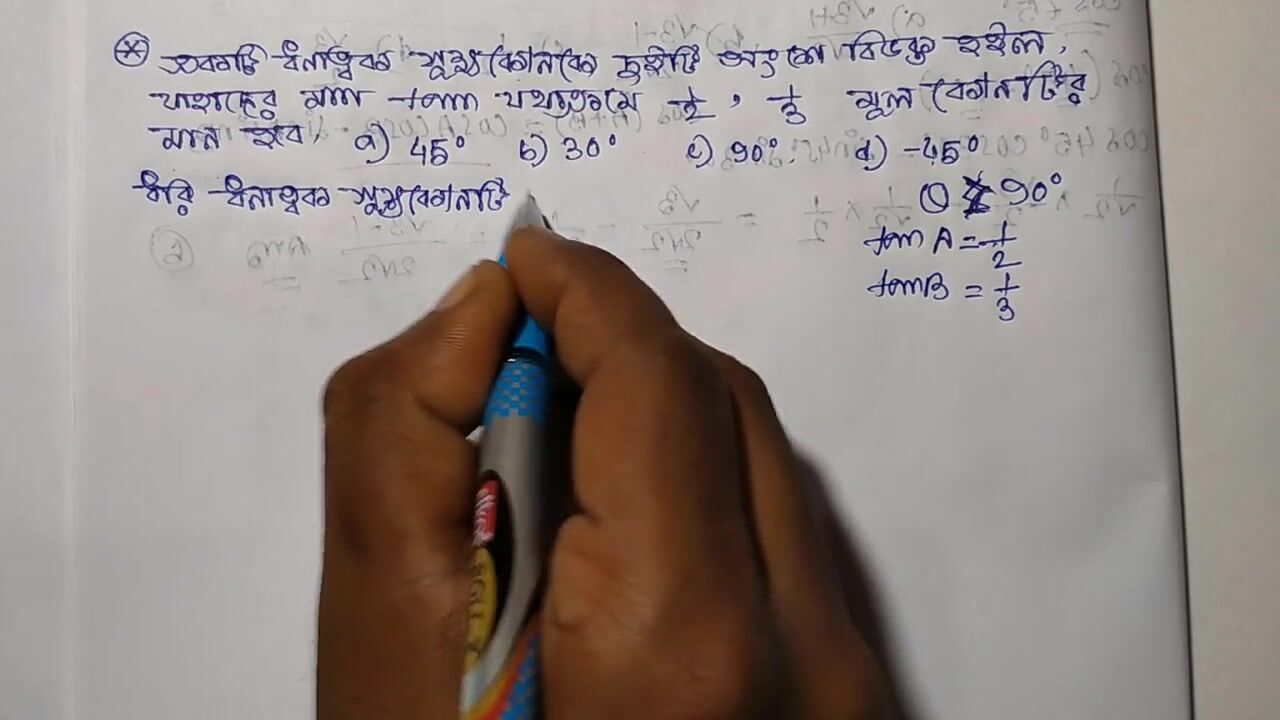 একটি ধনাত্বক সূক্ষ্মকোনকে দুইটি অংশে বিভক্ত হইল,
যাহাদের মান tan যথাক্রমে 1/2, 1/3 মূল কোনটির
মান হবে, a) 45° b) 30° c) 90°. d) -45°
ধরি ধনাত্বক সূক্ষ্মকোনটি
0 90°
tan A = 1/2
tan B = 1/3